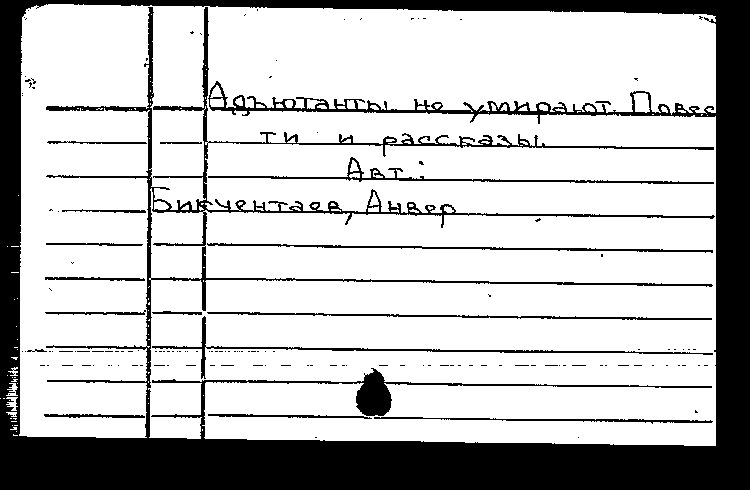 Адъютанты не умирают. Повес
ти и рассказы.
Авт.:
Бикчентаев, Анвер